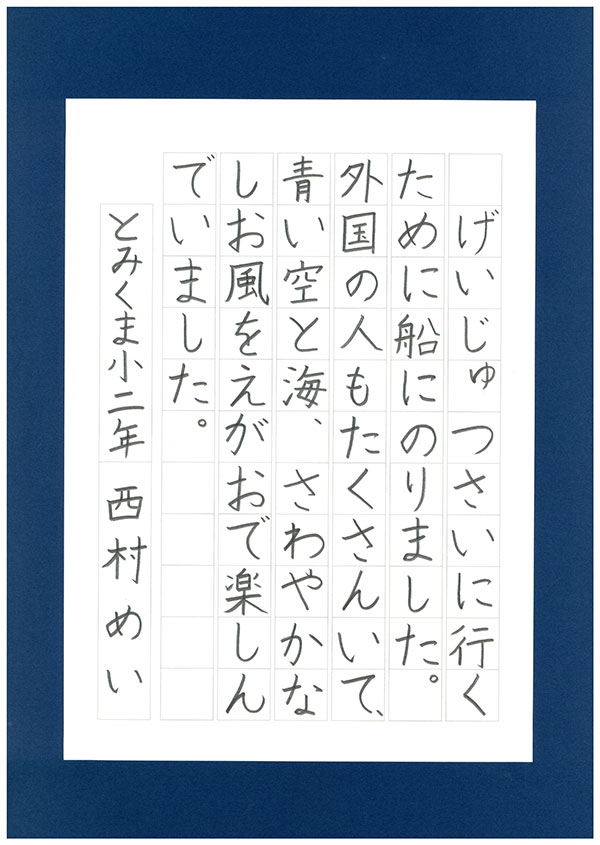 げいじゅつさいに行く
ために船にのりました。
外国の人もたくさんいて、
青い空と海、さわやかな
しお風をえがおで楽しん
でいました。
とみくま小二年　西村めい